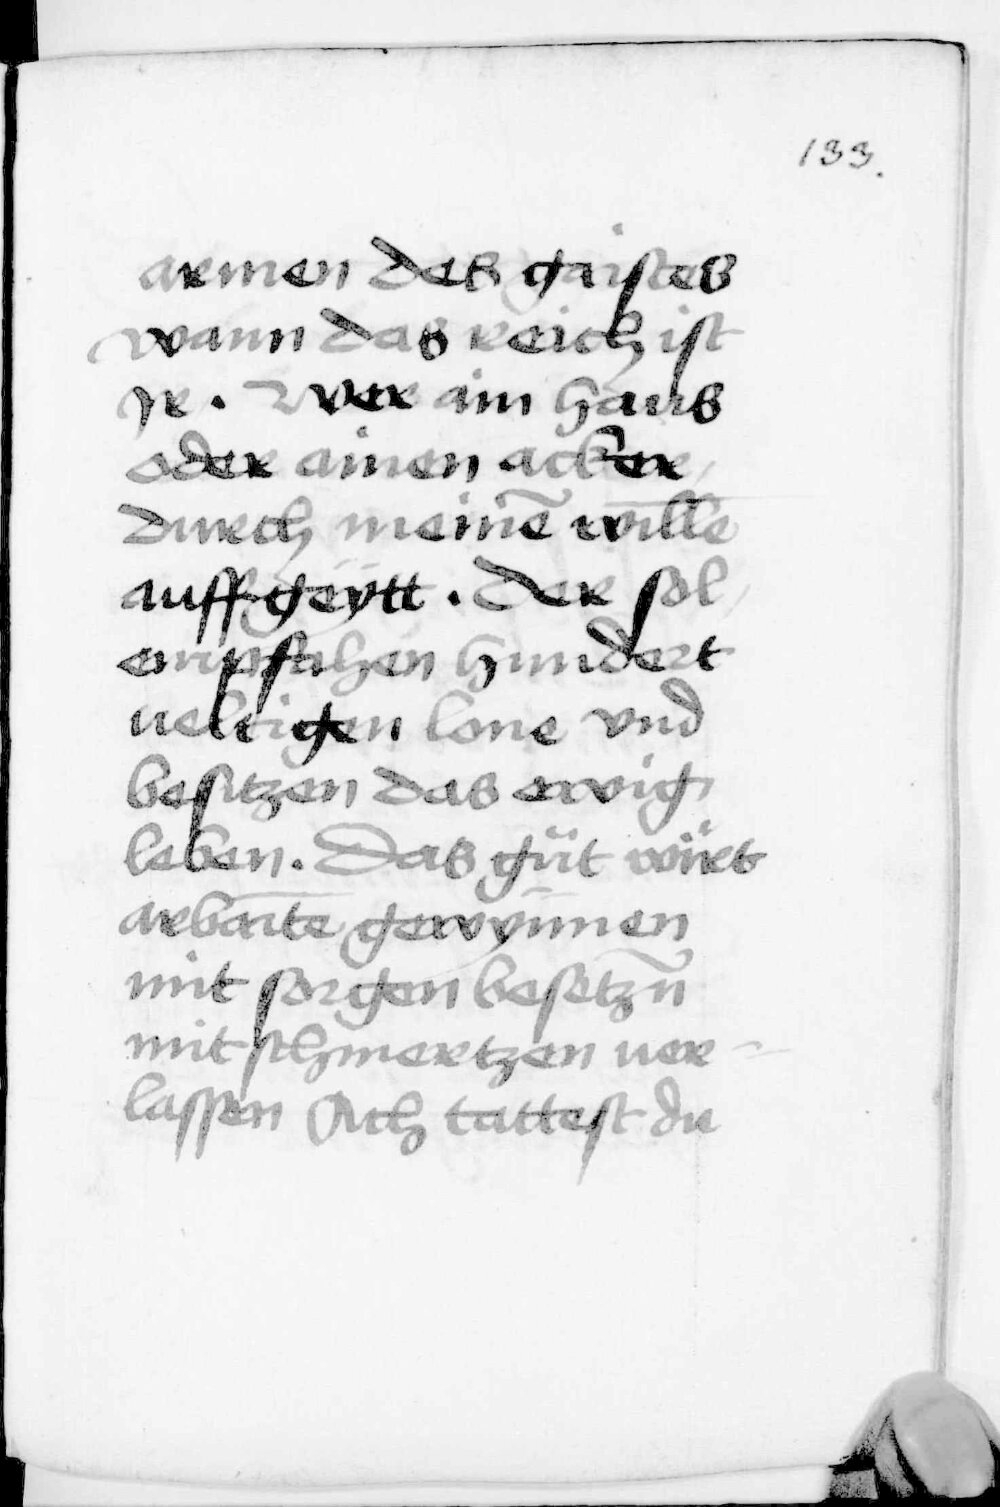 133.
armen des gaistes
wann das reich ist
jr. Wer ain haus
oder ainen acker
durch meinē wille
auffgeytt. Der sol
empfahen hundert
ueltigen lone vnd
besitzen das ewig
leben. Das güt würt
arbaite gewynnen
mit sorgen besetzn̄
mit schmertzen uer-
lassen Ach tattest du